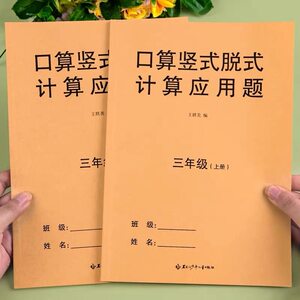 口算竖式
计算应
三年级
班 级:
姓 名:
口算竖式脱式
计算应用题
三年级(上册)
班 级:
姓 名: